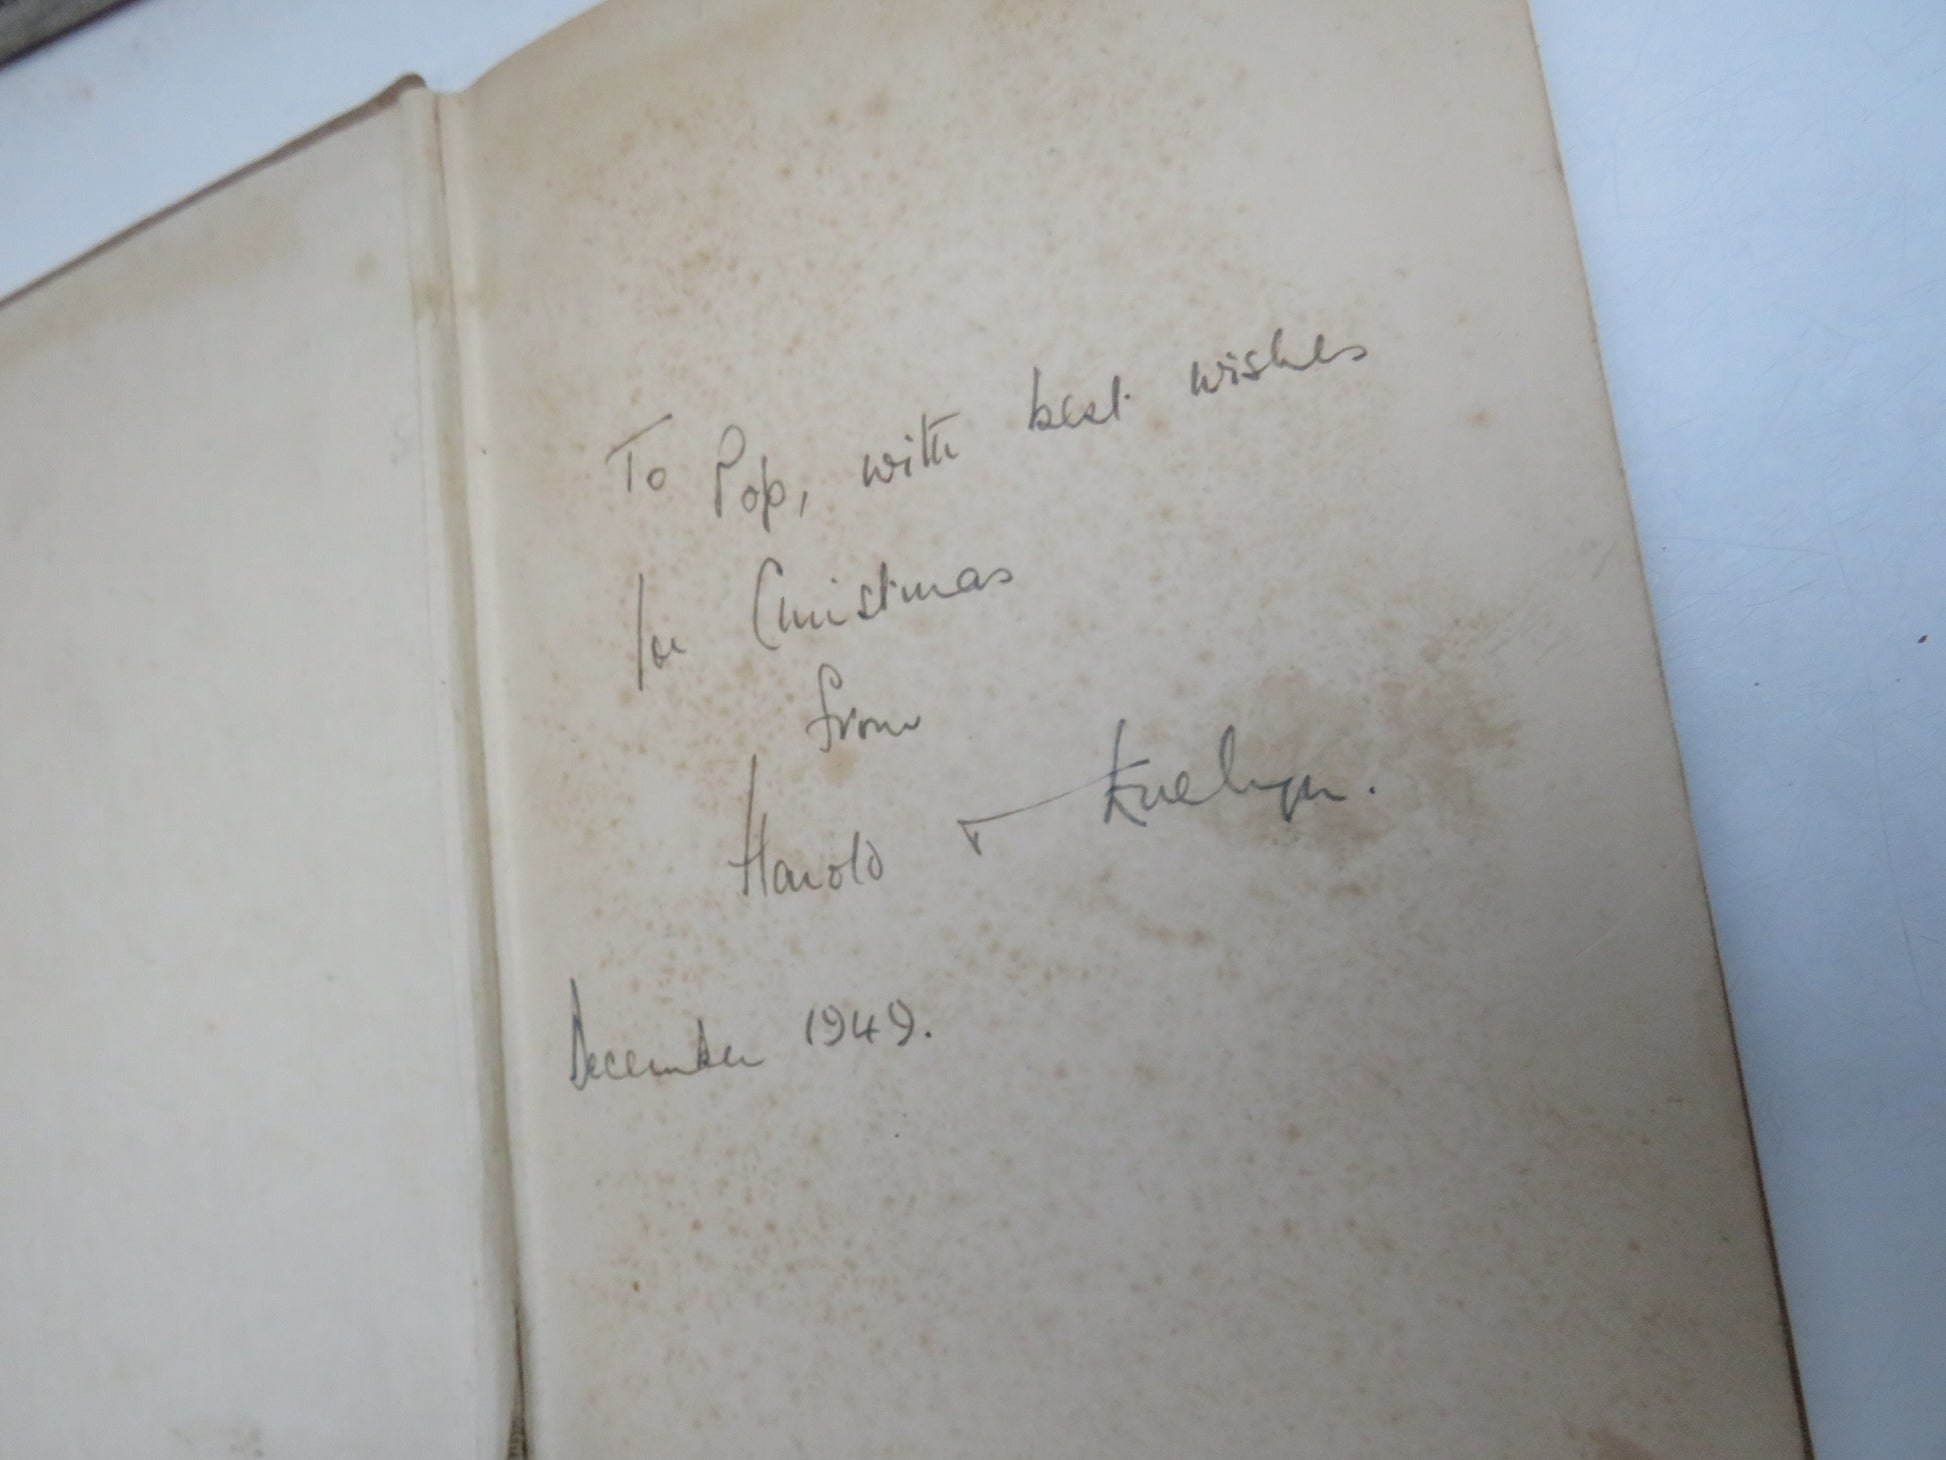 To Pop, with best wishes
for Christmas
from
Harold & Evelyn.
December 1949.